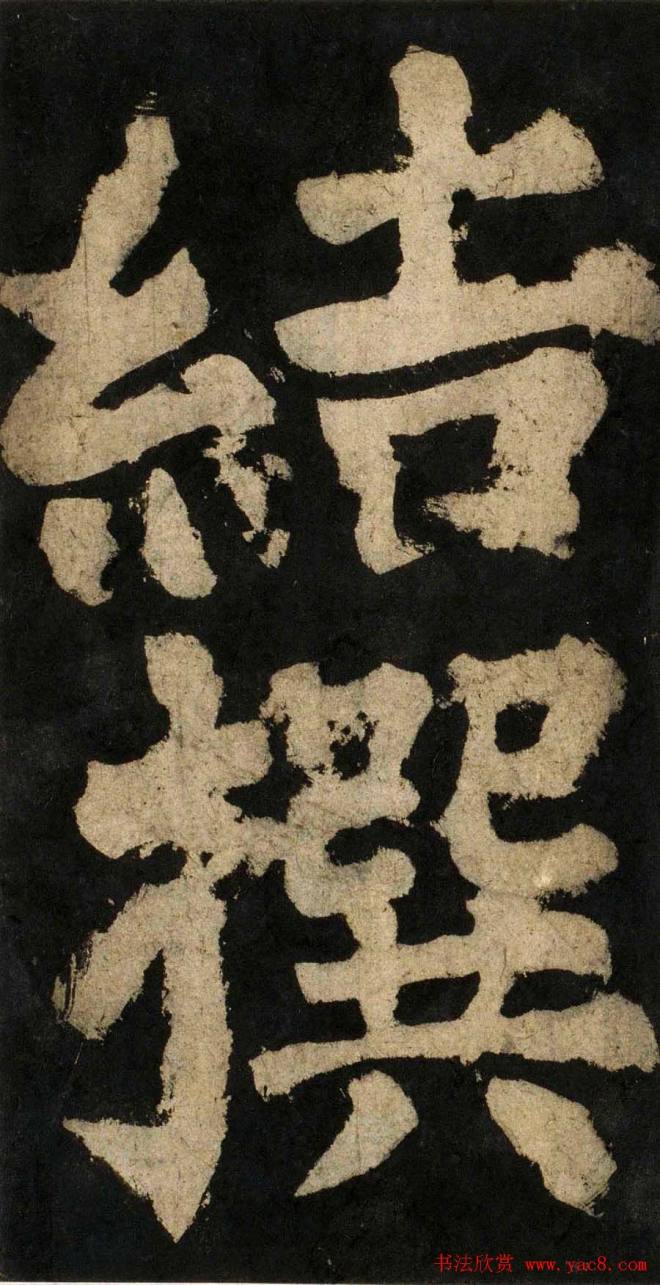 結
撰
书法欣赏 www.yac8.com